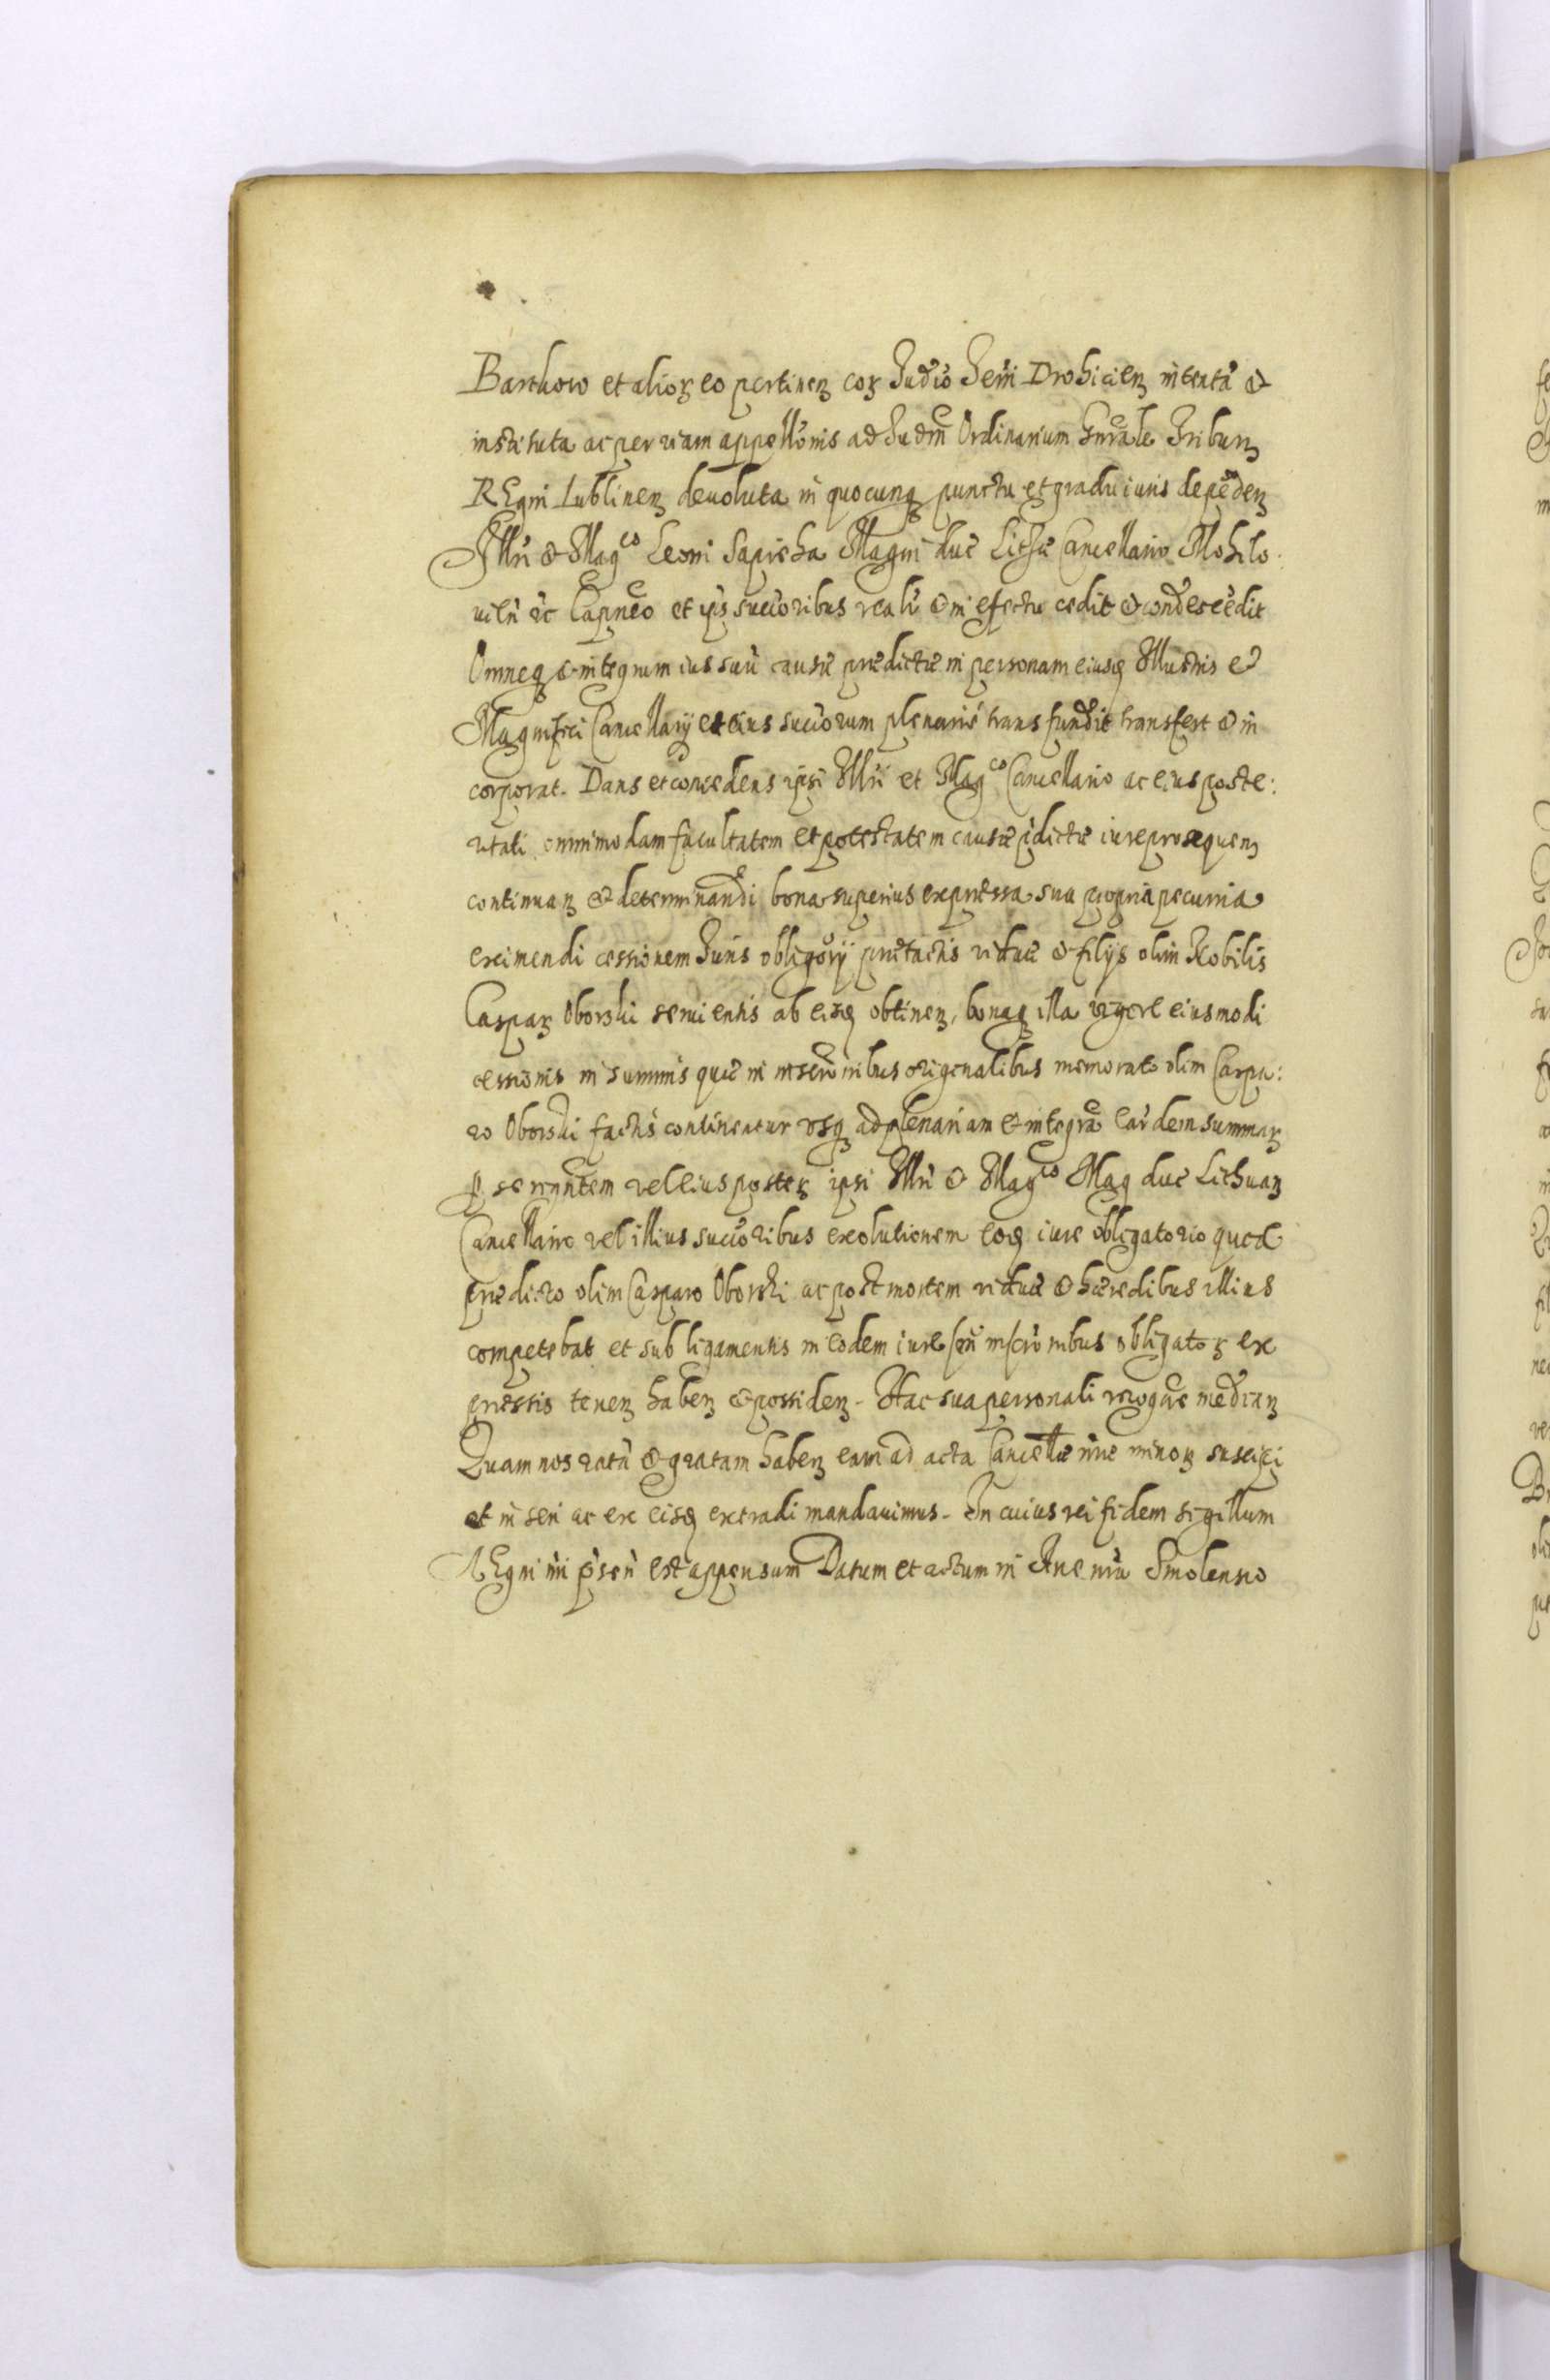 Barchow et alioꝝ eo pertineꝫ coꝝ Judiō Terři Drohicieꝫ intentā &
instituta ac per viam appellōnis ad Judm̄ Ordinarium Gn̄rale Tribunꝫ
REgni Lublineꝫ devoluta in quocunqꝫ punctu et gradu iuris depēdeꝫ
Illrī & Magco Leoni Sapieha Magni duc̄ Lithū Cancellario Mohilo
vieň ēc Capneo et ip̄s succōribus realī & in efectu cedit & condescēdit
Omneqꝫ & integrum ius suū causæ prædictæ in personam eiusꝗ Illustris et
Magnifici Cancellarÿ et eius succōrum plenariè transfundit transfert & in
corporat. Dans et concedens ipsi Illrī et Magco Cancellario ac eius poste:
ritati omnimodam facultatem et potestatem causæ p̄dictæ iure prosequenꝫ
continuaꝫ & determinandi bona superius expressa sua propria pecunia
eximendi cessionem Juris obligōrÿ prætactis viduæ & filÿs olim Nobilis
Caspaꝝ Oborski servientis ab eisꝗ obtineꝫ, bonaqꝫ illa vigore eiusmodi
cessionis in summis quæ in inscrōnibus origenalibus memorato olim Caspa:
ro Oborski factis continentur usqꝫ ad plenariam & integrā earūdem summaꝝ
ꝑ serm̄ntem vel eius posteꝝ ipsi Illrī & Magco Mag duc̄ Lithuaꝫ
Cancellario vel illius succōribus exolutionem eoꝗ iure obligatorio quod
prædicto olim Casparo Oborski ac post mortem viduæ & hæredibus illius
competebat et sub ligamentis in eodem iure seu inscrōnibus obligatoꝝ ex
pressis teneꝫ habeꝫ & possideꝫ. Hac sua personali recogn̄e medianꝫ
Quam nos ratā & gratam habeꝫ eam ad acta Cancellæ n̄ræ minoꝝ suscipi
et inseri ac ex eisꝗ extradi mandavimus. In cuius rei fidem sigillum
REgni n̄ri p̄seň est appensum Datum et actum in Arce n̄ra Smolensco